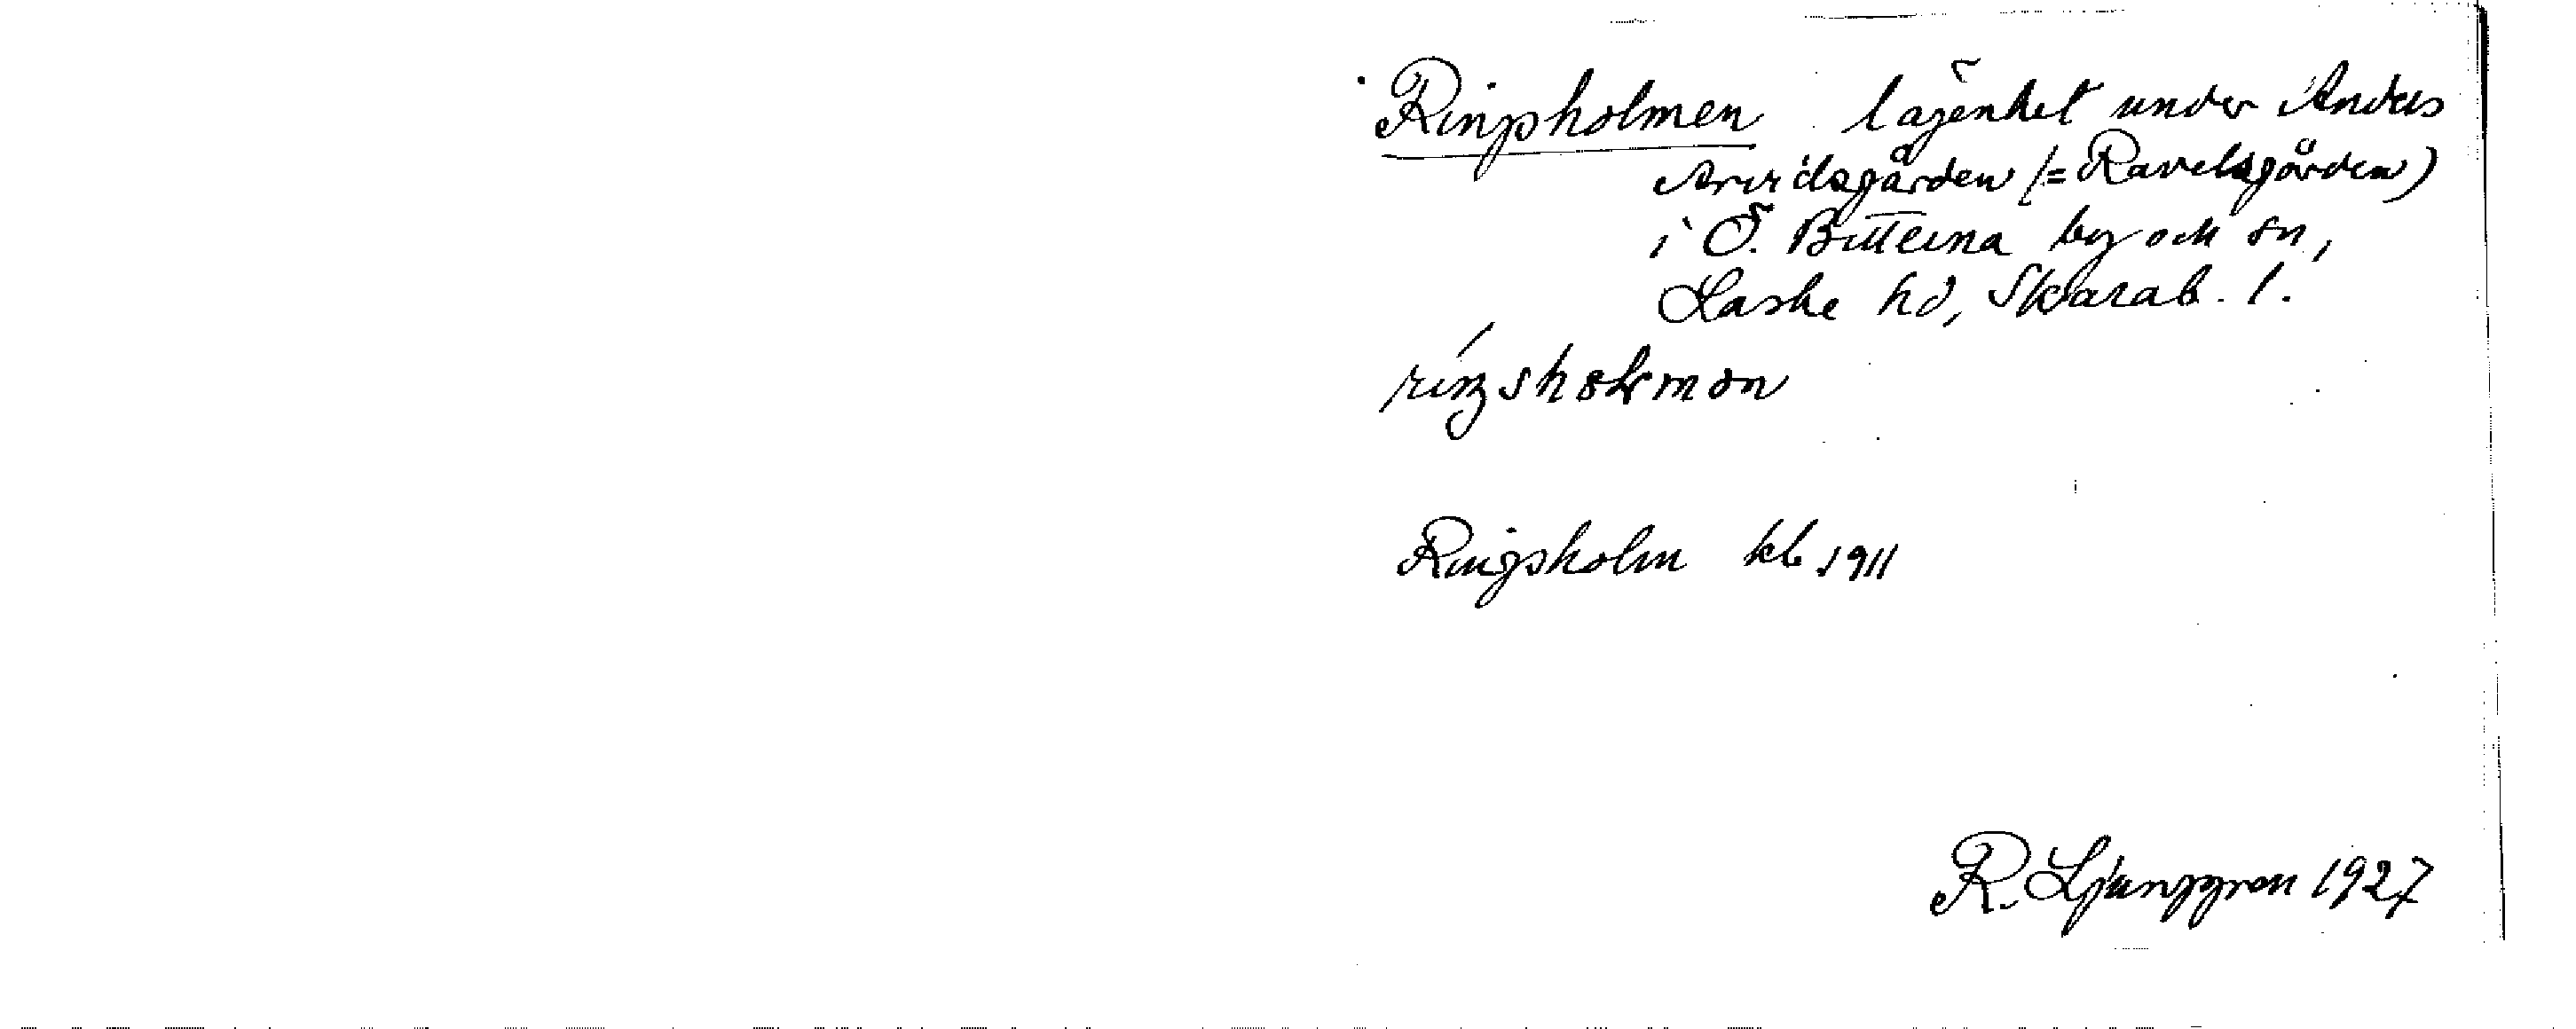 Ringsholmen lägenhet under Anders
Arvidsgården (= Ravelsgården)
i Ö. Bitterna by och sn,
Laske hd, Skarab. l.
Ringsholm kb 1911
R. Ljunggren 1927